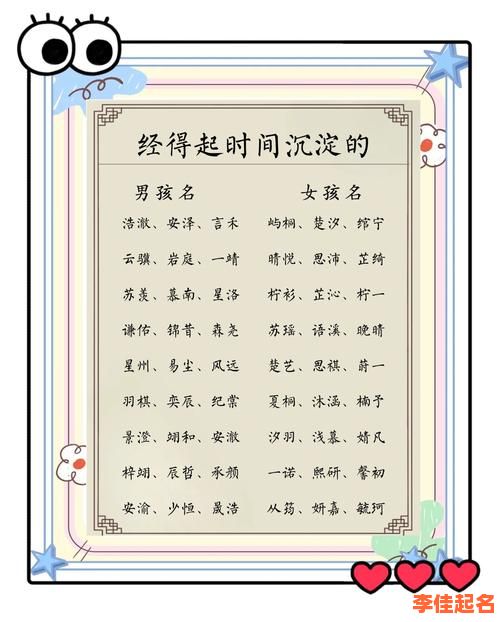 经得起时间沉淀的
男孩名 女孩名
浩澈、安泽、言禾 屿桐、楚汐、绾宁
云骥、岩庭、一靖 晴悦、思沛、芷绮
苏羡、慕南、星洛 柠衫、芷沁、柠一
谦佑、锦昔、森尧 苏瑶、语溪、晚晴
星州、易尘、风远 楚艺、思棋、蔚一
羽棋、奕辰、纪棠 夏桐、沐涵、楠予
景澄、翊和、安澈 汐羽、浅慕、婧凡
梓翊、辰哲、承颜 一诺、熙研、馨初
安渝、少恒、晟浩 从筠、妍嘉、毓珂
李佳起名